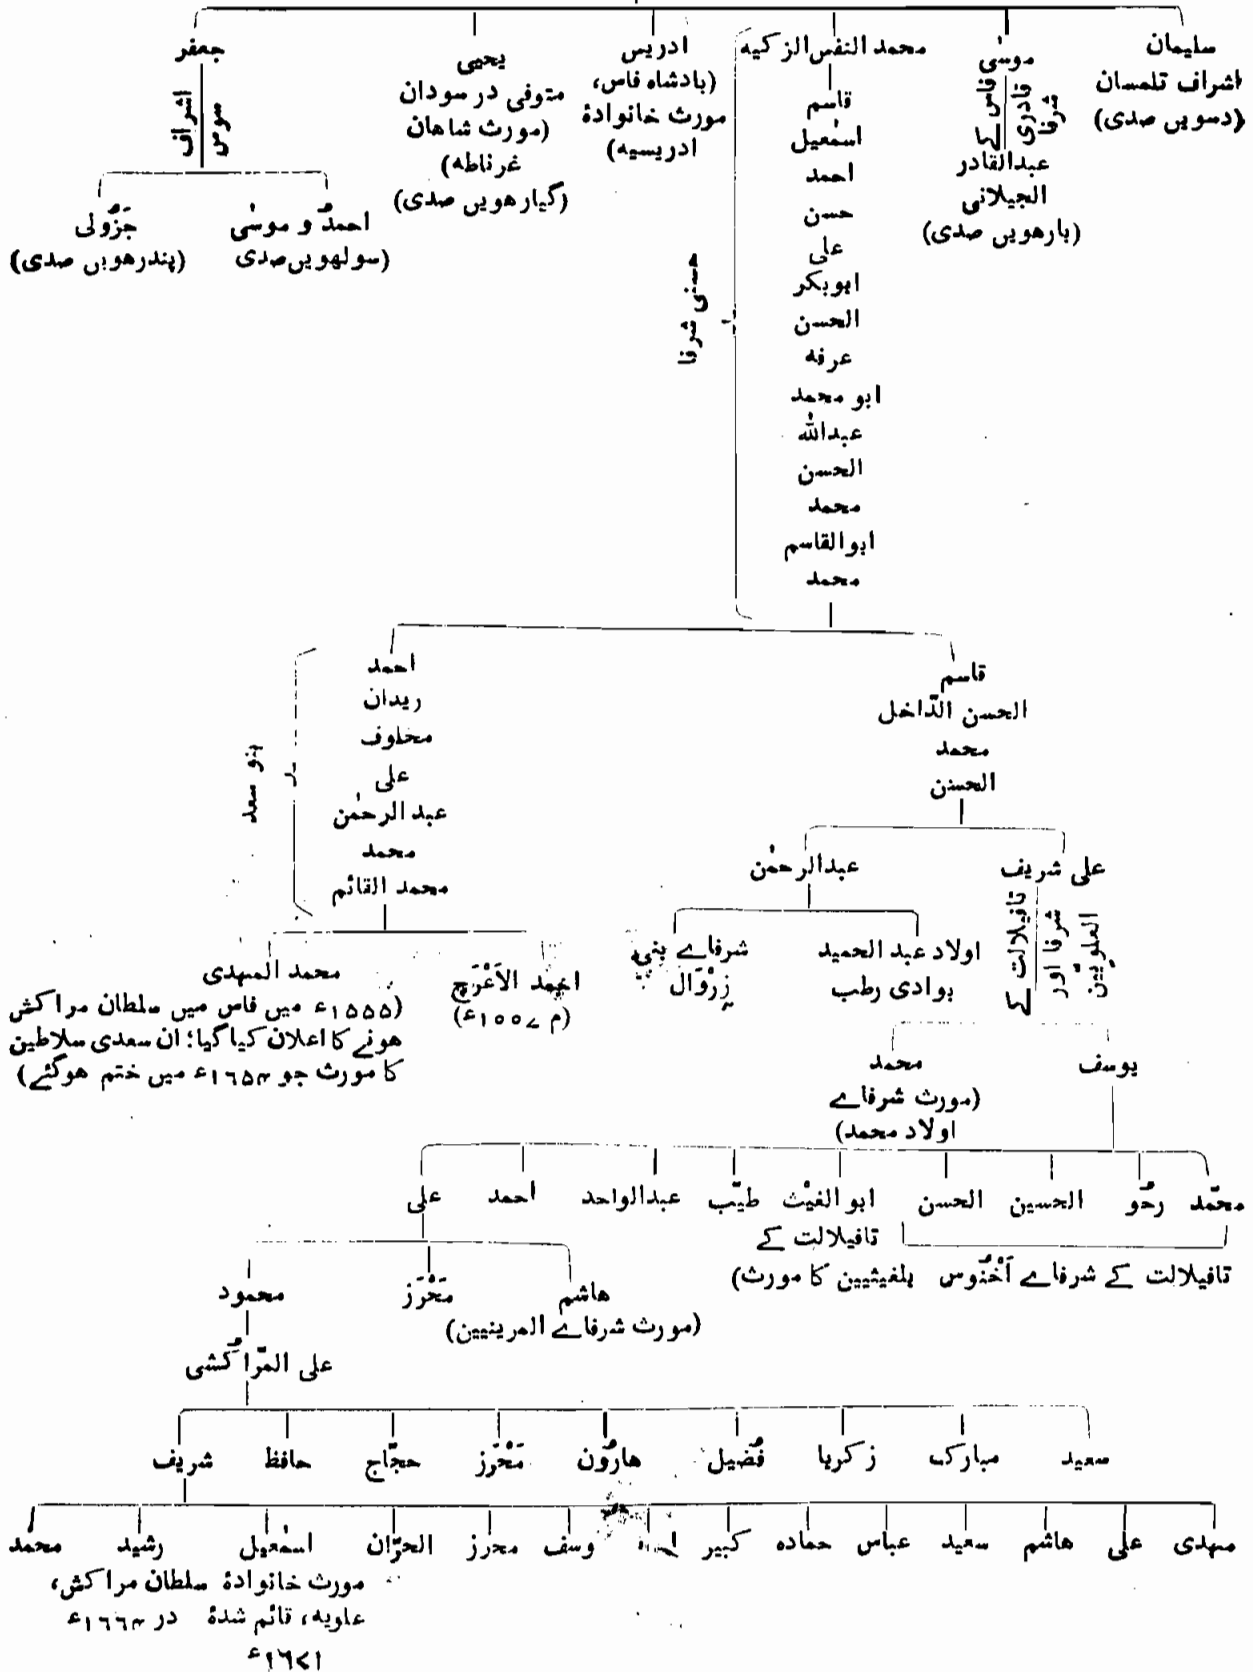 سلیمان
اشراف تلمسان
(دسویں صدی)
موسٰی
فاس کے
قادری
شرفا
عبدالقادر
الجیلانی
(بارھویں صدی)
محمد النفس الزکیہ
قاسم
اسمٰعیل
احمد
حسن
علی
ابوبکر
الحسن
عرفہ
ابو محمد
عبداللّٰہ
الحسن
محمد
ابوالقاسم
محمد
حسنی شرفا
ادریس
(بادشاہ فاس،
مورث خانوادۂ
ادریسیہ)
یحیی
متوفی در سودان
(مورث شاھان
غرناطہ)
(گیارھویں صدی)
جعفر
اشراف
سوس
احمدُ و موسٰی
(سولھویں صدی)
جَزُولی
(پندرھویں صدی)
قاسم
الحسن الدّاخل
محمد
الحسن
احمد
ریدان
مخلوف
علی
عبدالرحمٰن
محمد
محمد القائم
بنو سعد
علی شریف
تافیلالت کے
شرفا اور
العلویّین
عبدالرحمٰن
اولاد عبد الحمید
بوادی رطب
شرفاے بنی
زِرْوَال
احمد الاَعْرَج
(م ۱۵۵۷ء)
محمد المہدی
(۱۵۵۵ء میں فاس میں سلطان مراکش
ھونے کا اعلان کیا گیا؛ ان سعدی سلاطین
کا مورث جو ۱۶۵۴ء میں ختم ھوگئے)
یوسف
محمد
(مورث شرفاے
اولاد محمد)
محمّد
رحُو
الحسین
الحسن
ابو الغیْث
طیّب
عبدالواحد
احمد
علی
تافیلالت کے
تافیلالت کے شرفاے اَخْنُوس بلغیثیین کا مورث)
ھاشم
(مورث شرفاے المرینیین)
مَحْرَز
محمود
علی المّراکُشی
سعید
مبارک
زکریا
فُضیل
ھارُون
مَحْرَز
حجّاج
حافظ
شریف
مہدی
علی
ھاشم
سعید
عباس
حمادہ
کبیر
محرز
الحرّان
اسمٰعیل
رشید
محمّد
مورث خانوادۂ سلطان مراکش،
علویہ، قائم شدۂ در ۱۶۶۴ء
۱۶۷۱ء